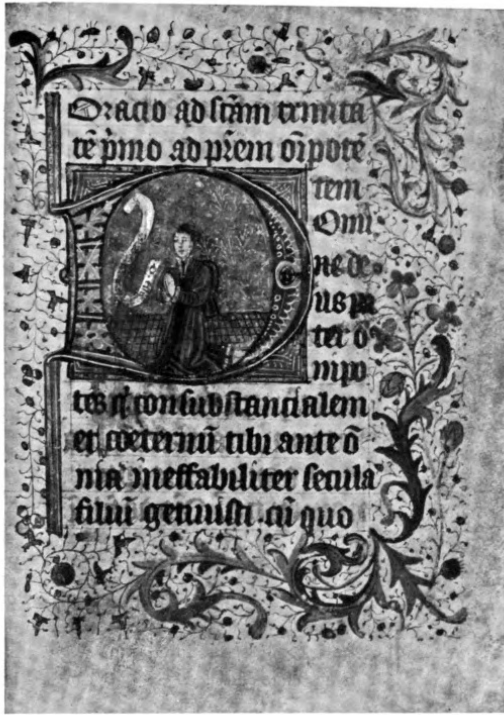 Oracio ad sc̄am trinita
tē p̄mo ad pr̄em om̄ipotē
tem
Omi
ne de
us pa
ter ō
nipo
tēs q̄ consubstancialem
et coeternū tibi ante ō
nia ineffabiliter secula
filiū genuisti. cū quo